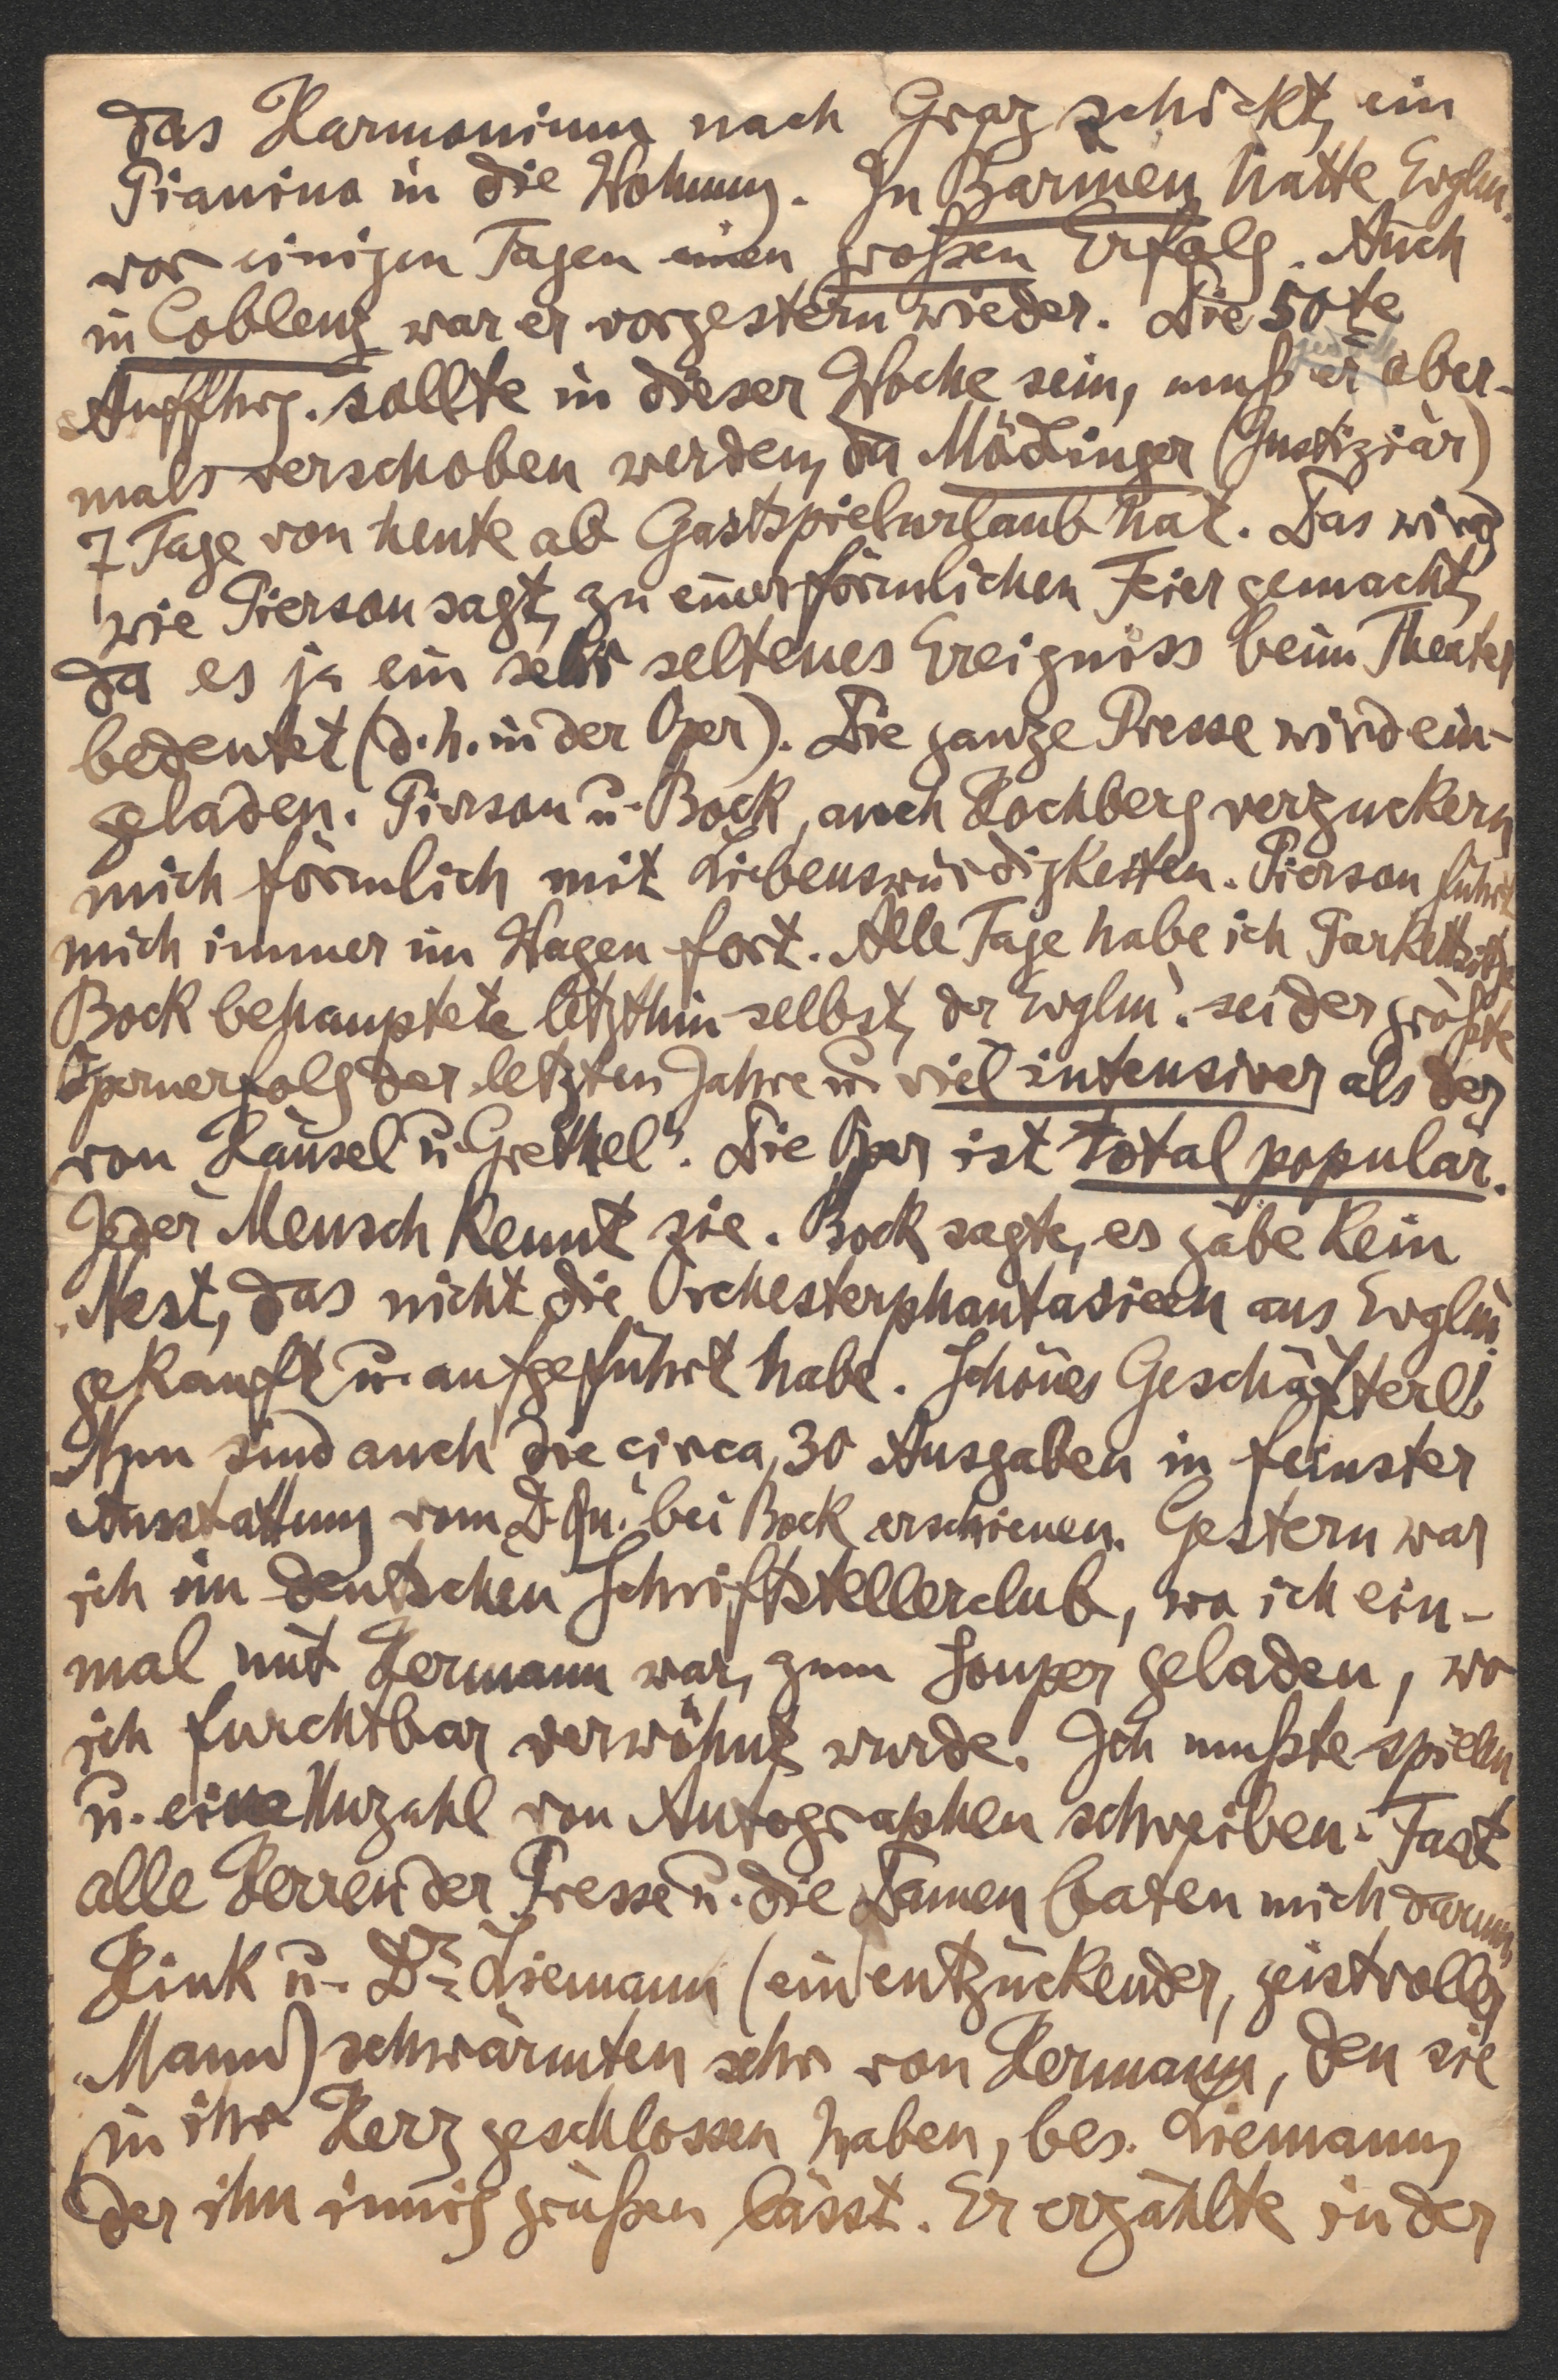 das Harmonium nach Graz schickt, ein
Pianino in die Wohnung. In Barmen hatte Evglm.
vor einigen Tagen einen großen Erfolg. Auch
in Coblenz war er vorgestern wieder. Die 50te
Auffhrg. sollte in dieser Woche sein, muß er aber-
mals verschoben werden, da Mödlinger (Justiziär)
7 Tage von heute ab Gastspielurlaub hat. Das wird,
wie Pierson sagt, zu einer förmlichen Feier gemacht,
da es ja ein sehr seltenes Ereigniss beim Theater
bedeutet (d.h. in der Oper). Die ganze Presse wird ein-
geladen. Pierson u. Bock, auch Hochberg verzuckern
mich förmlich mit Liebenswürdigkeiten. Pierson führt
mich immer im Wagen fort. Alle Tage habe ich Parkettsitze
Bock behauptete letzthin selbst, der Evglm. sei der größte
Opernerfolg der letzten Jahre u. viel intensiver als der
von Hänsel u. Grethel". Die Oper ist total populär.
Jeder Mensch kennt sie. Bock sagte, es gäbe kein
Nest, das nicht die Orchesterphantasieen aus Evglm.
gekauft u. aufgeführt habe. Schönes Geschäfterl!
Nun sind auch die circa 30 Ausgaben in feinster
Ausstattung vom D. Qu. bei Bock erschienen. Gestern war
ich im deutschen Schriftstellerclub, wo ich ein-
mal mit Hermann war, zum Souper geladen, wo
ich furchtbar verwöhnt wurde. Ich mußte spielen
u. eine Unzahl von Autographen schreiben. Fast
alle Herren der Presse u. die Damen baten mich darum,
Hink u. Dr. Liemann (ein entzückender, geistvoller
Mann) schwärmten sehr von Hermann, den sie
in ihr Herz geschlossen haben, bes. Liemann,
der ihn innig grüßen lässt. Er erzählte in der